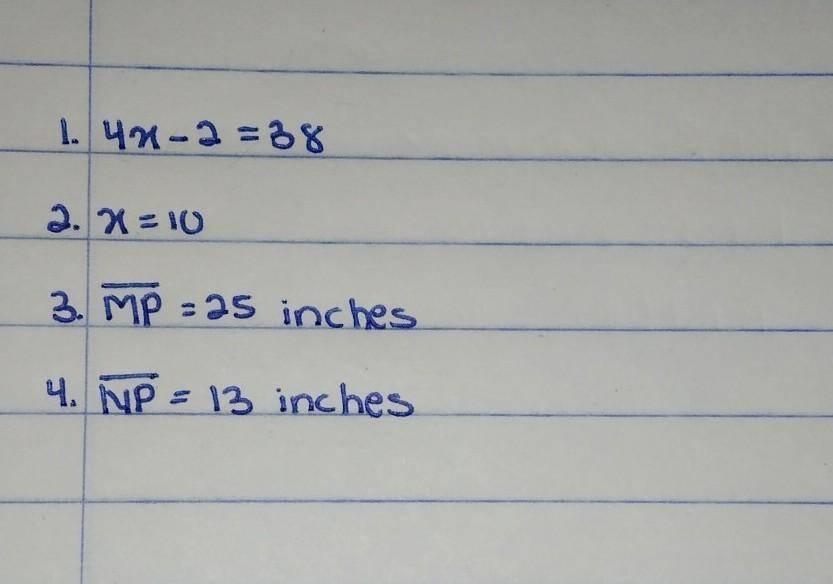 1. 4x-2=38
2. x=10
3. M̅P̅ = 25 inches
4. N̅P̅ = 13 inches